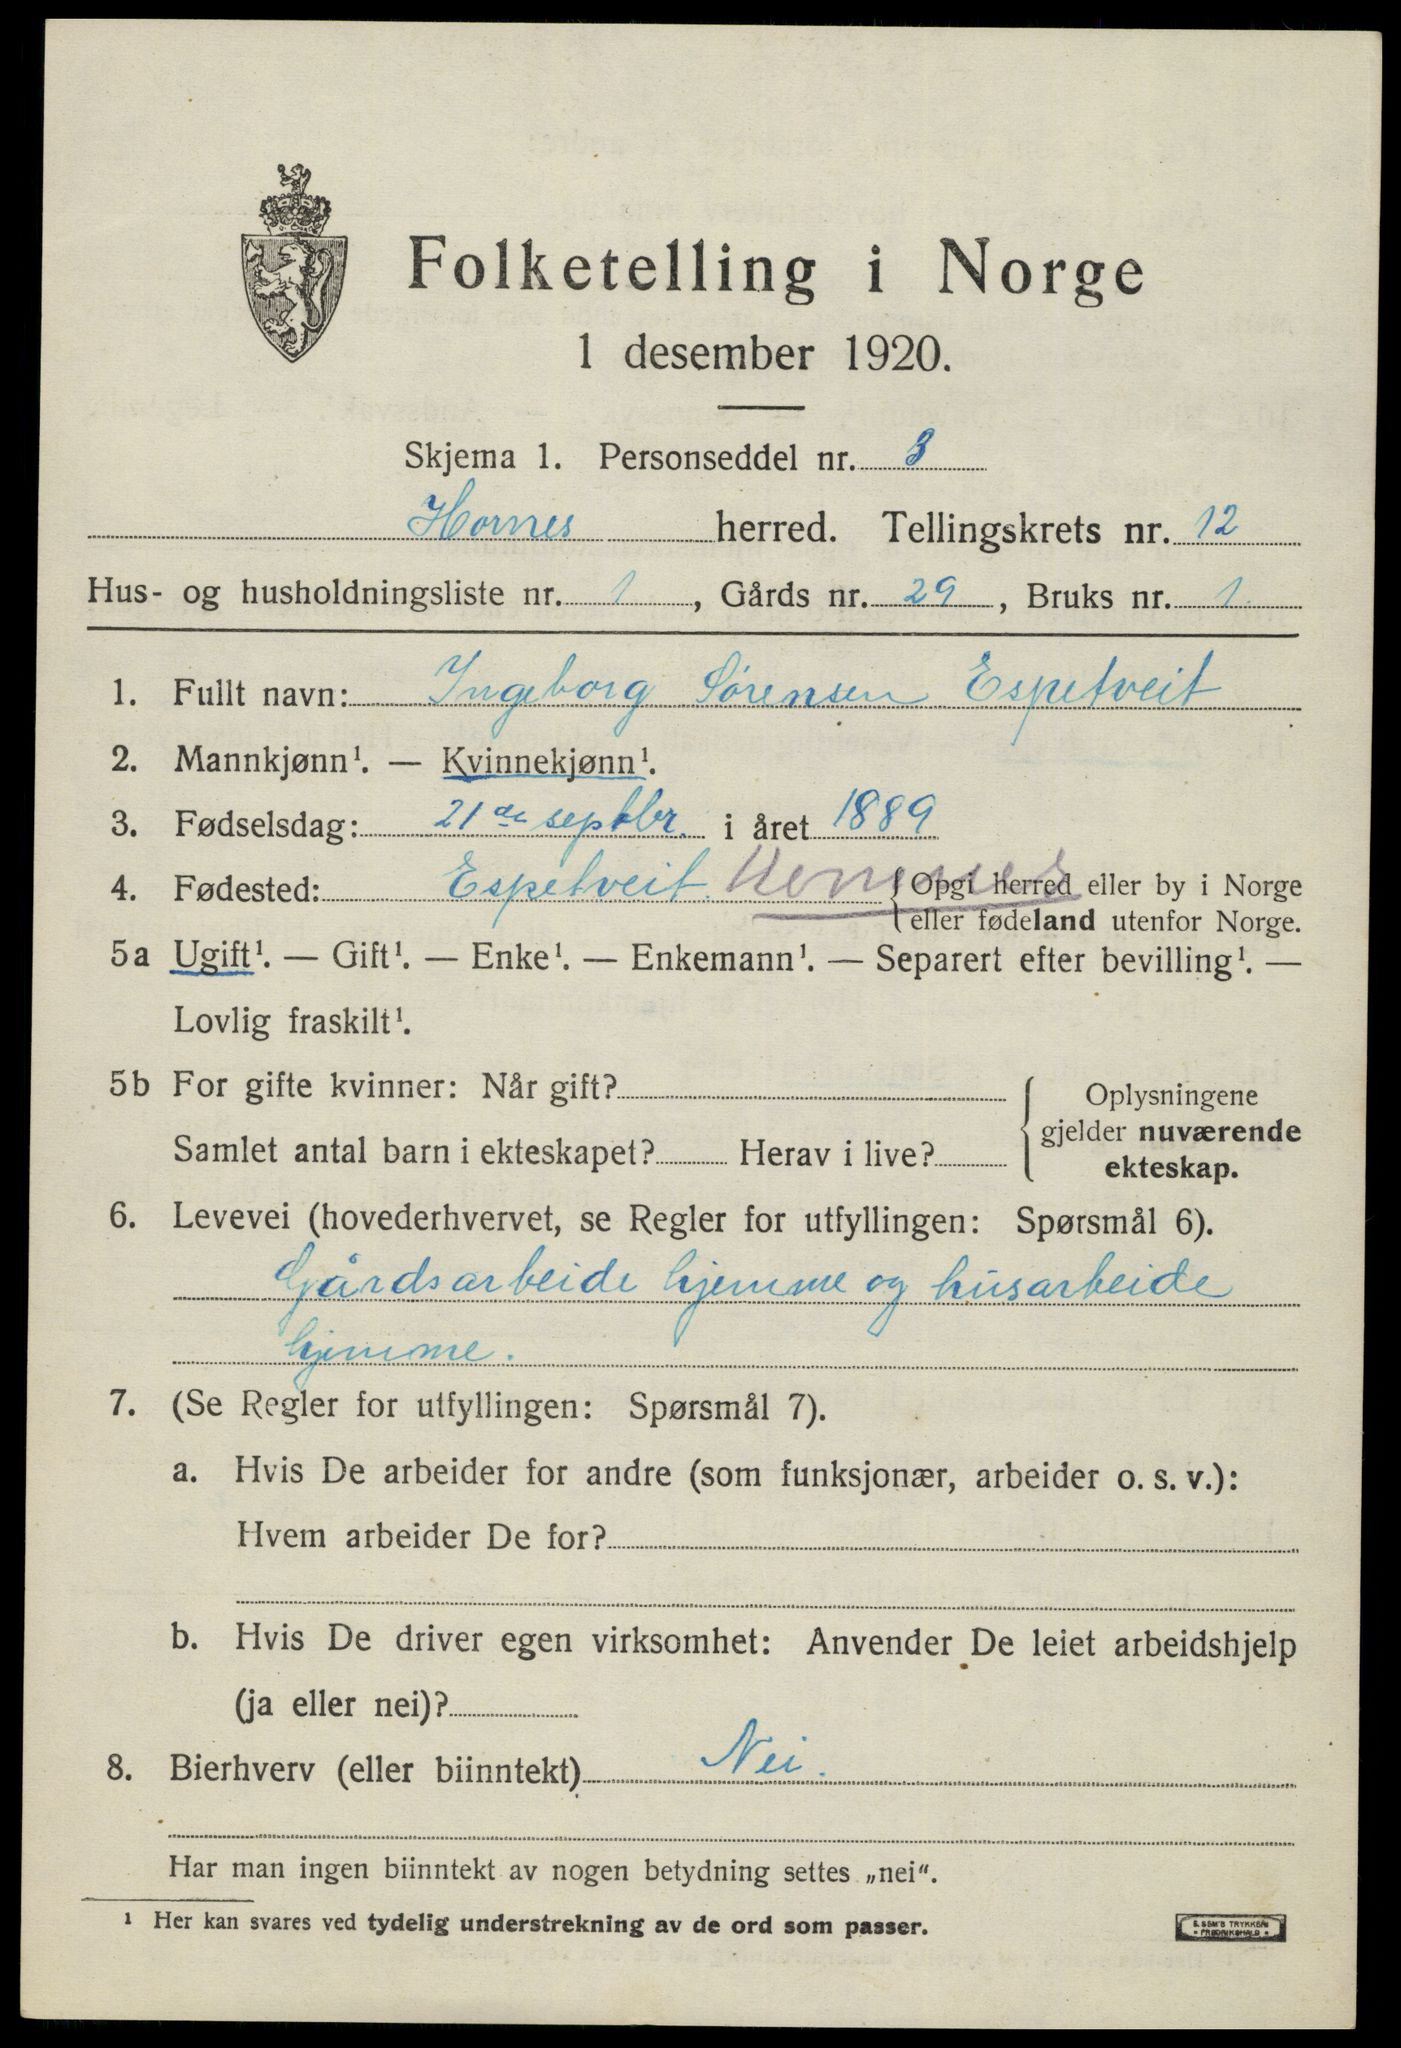 Folketelling i Norge
1 desember 1920.
Skjema 1. Personseddel nr. 3
Hornnes herred. Tellingskrets nr. 12
Hus- og husholdningsliste nr. 1, Gårds nr. 29, Bruks nr. 1.
1. Fullt navn: Ingeborg Sørensen Espetveit
2. Mannkjønn¹. — Kvinnekjønn¹.
3. Fødselsdag: 21de septbr. i året 1889
4. Fødested: Espetveit. Hornnes {Opgi herred eller by i Norge
eller fødeland utenfor Norge.
5a Ugift¹. — Gift¹. — Enke¹. — Enkemann¹. — Separert efter bevilling¹. —
Lovlig fraskilt¹.
5b For gifte kvinner: Når gift?
Samlet antal barn i ekteskapet? Herav i live?
{ Oplysningene
gjelder nuværende
ekteskap.
6. Levevei (hovederhvervet, se Regler for utfyllingen: Spørsmål 6).
Gårdsarbeide hjemme og husarbeide
hjemme.
7. (Se Regler for utfyllingen: Spørsmål 7).
a. Hvis De arbeider for andre (som funksjonær, arbeider o. s. v.):
Hvem arbeider De for?
b. Hvis De driver egen virksomhet: Anvender De leiet arbeidshjelp
(ja eller nei)?
8. Bierhverv (eller biinntekt) Nei.
Har man ingen biinntekt av nogen betydning settes „nei“.
¹ Her kan svares ved tydelig understrekning av de ord som passer.
E. SEM'S TRYKKERI
* FREDRIKSHALD *